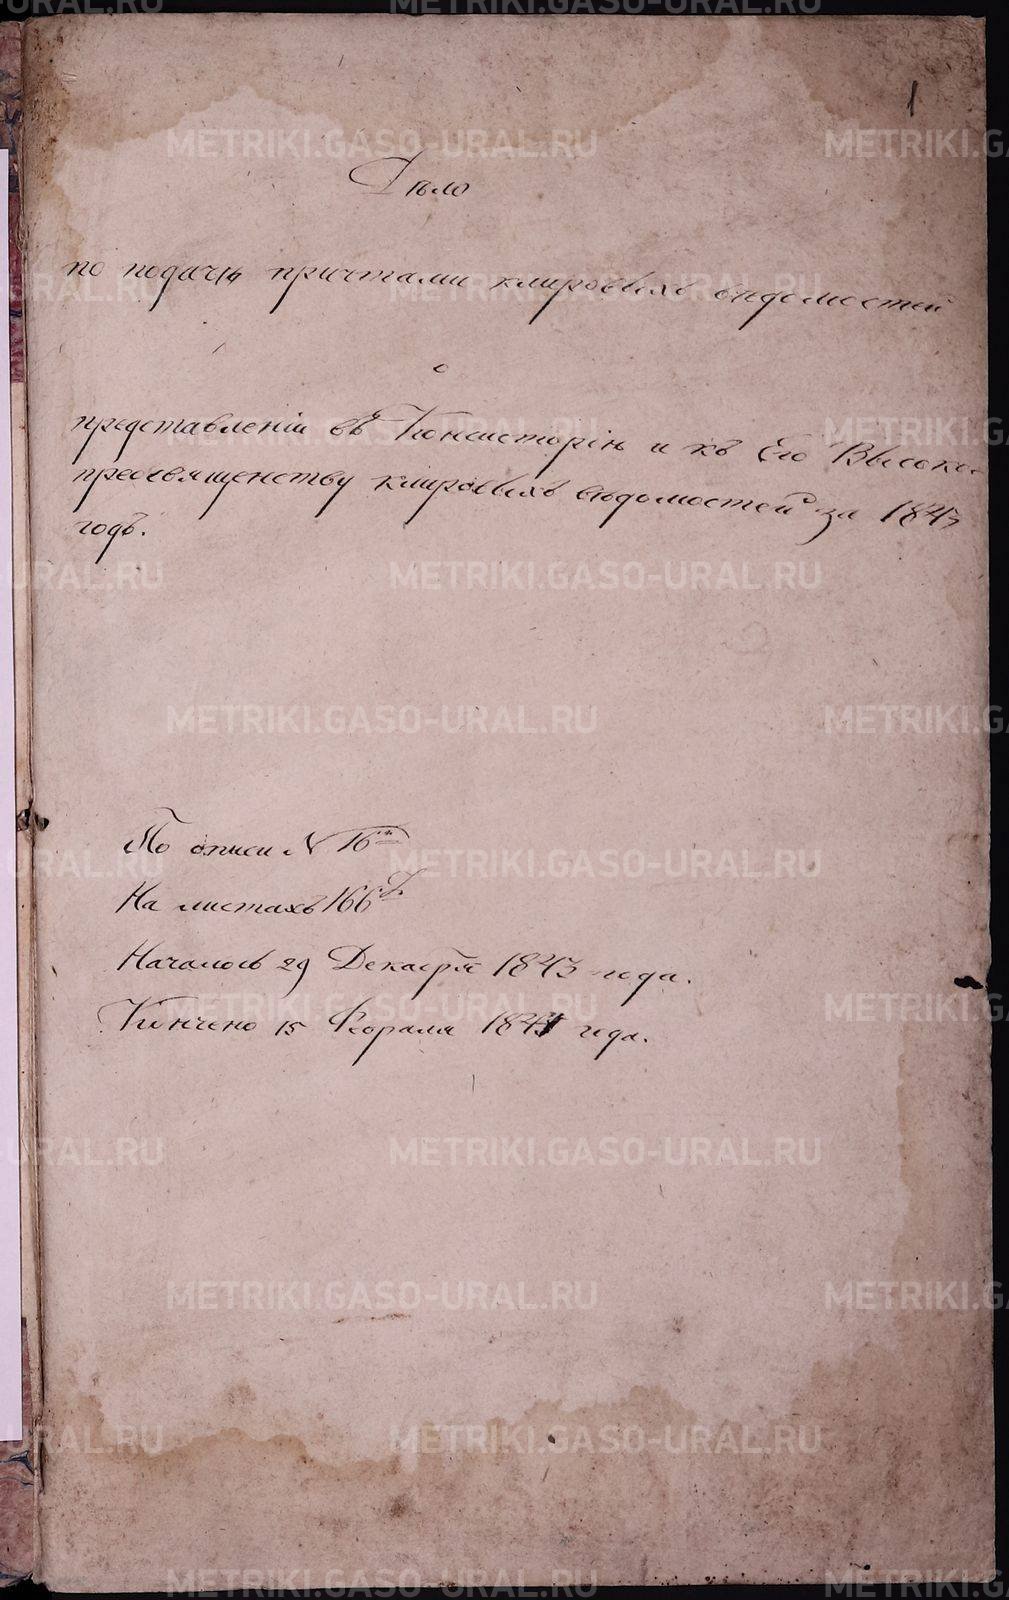 1
Дѣло
по подачѣ причтами клировыхъ вѣдомостей
о
представленіи въ Консисторію и къ Его Высоко-
преосвященству клировыхъ вѣдомостей за 1843
годъ.
По описи № 16
На листахъ 166
Началось 29 Декабря 1843 года.
Кончено 15 Февраля 1844 года.
METRIKI.GASO-URAL.RU